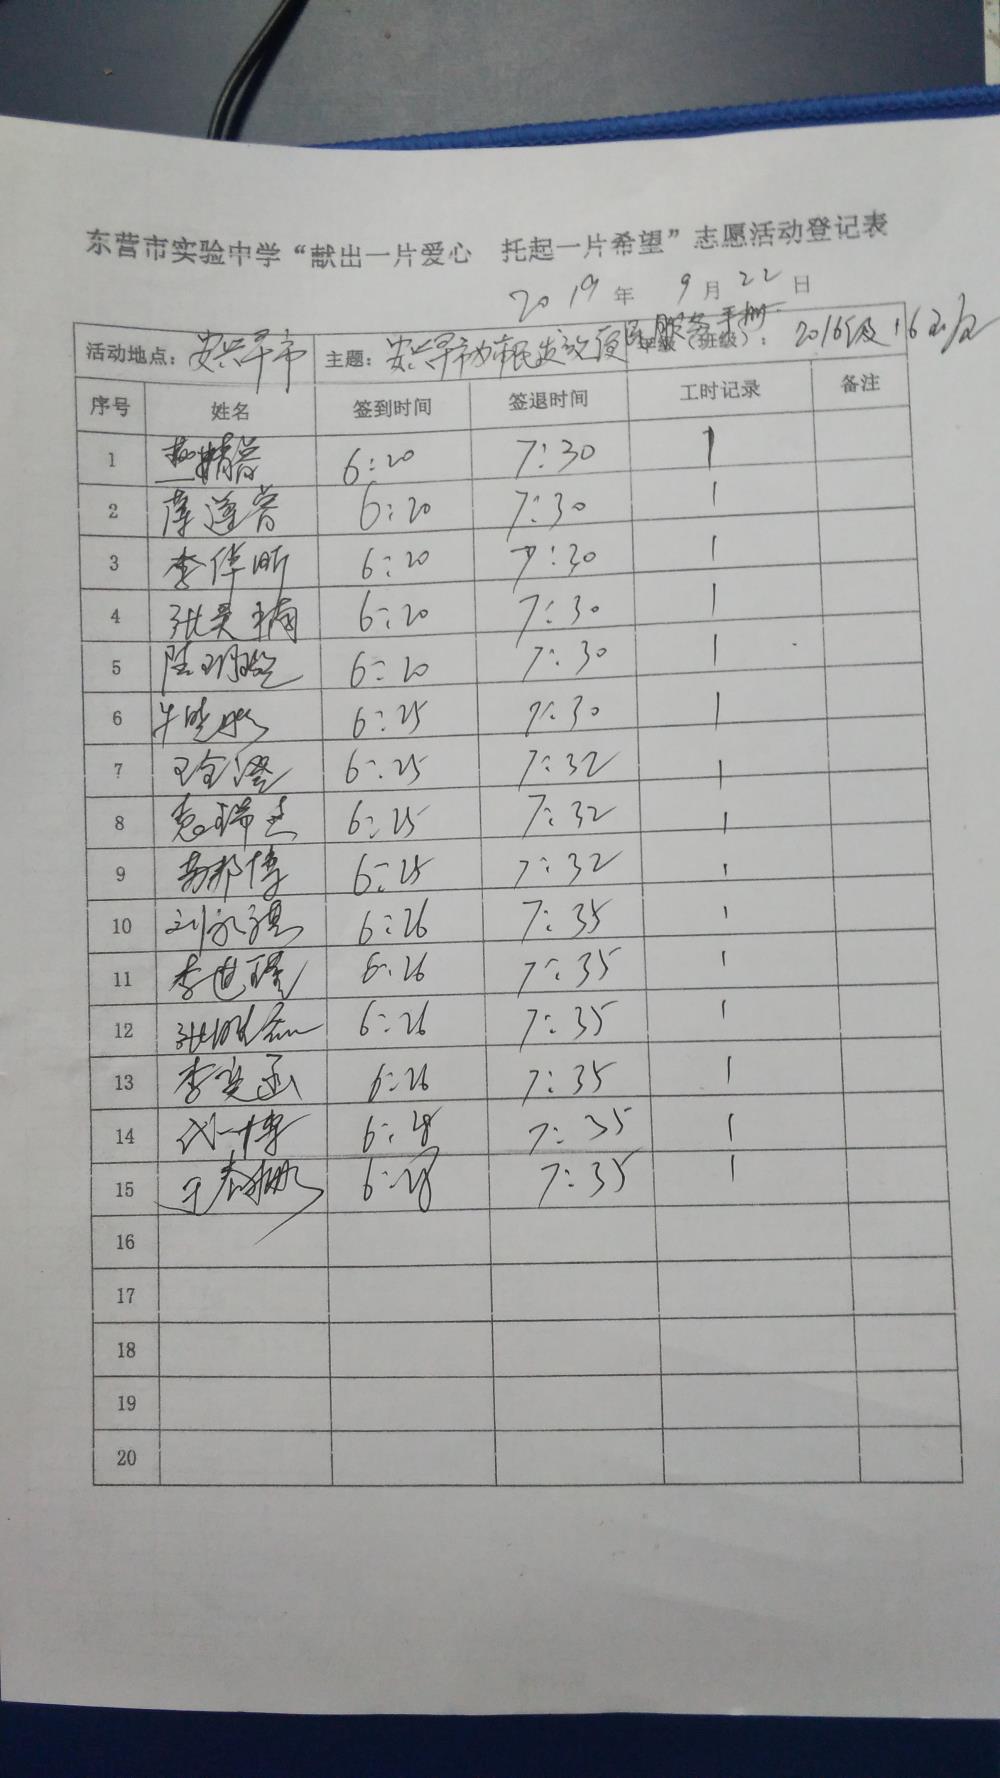 东营市实验中学“献出一片爱心 托起一片希望”志愿活动登记表
2019年 9月22日
活动地点：安兴早市 主题：安兴早市为市民发放便民服务手册 年级（班级）：2016级16班
序号 姓名 签到时间 签退时间 工时记录 备注
1 6:20 7:30 1
2 6:20 7:30 1
3 李倬昕 6:20 7:30 1
4 张昊楠 6:20 7:30 1
5 6:20 7:30 1
6 牛晓彤 6:25 7:30 1
7 王金澄 6:25 7:32 1
8 6:25 7:32 1
9 6:25 7:32 1
10 刘永琪 6:26 7:35 1
11 李世瑾 6:26 7:35 1
12 6:26 7:35 1
13 李奕函 6:26 7:35 1
14 代一博 6:28 7:35 1
15 王春姗 6:28 7:35 1
16
17
18
19
20